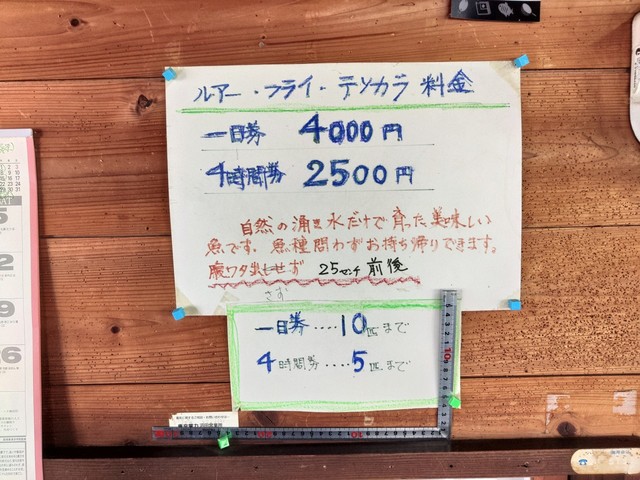 ルアー・フライ・テンカラ 料金
一日券 4000円
4時間券 2500円
自然の湧き水だけで育った美味しい
魚です。魚種問わずお持ち帰りできます。
腹ワタ出せず 25センチ前後
さず
一日券‥‥10匹まで
4時間券‥‥5匹まで